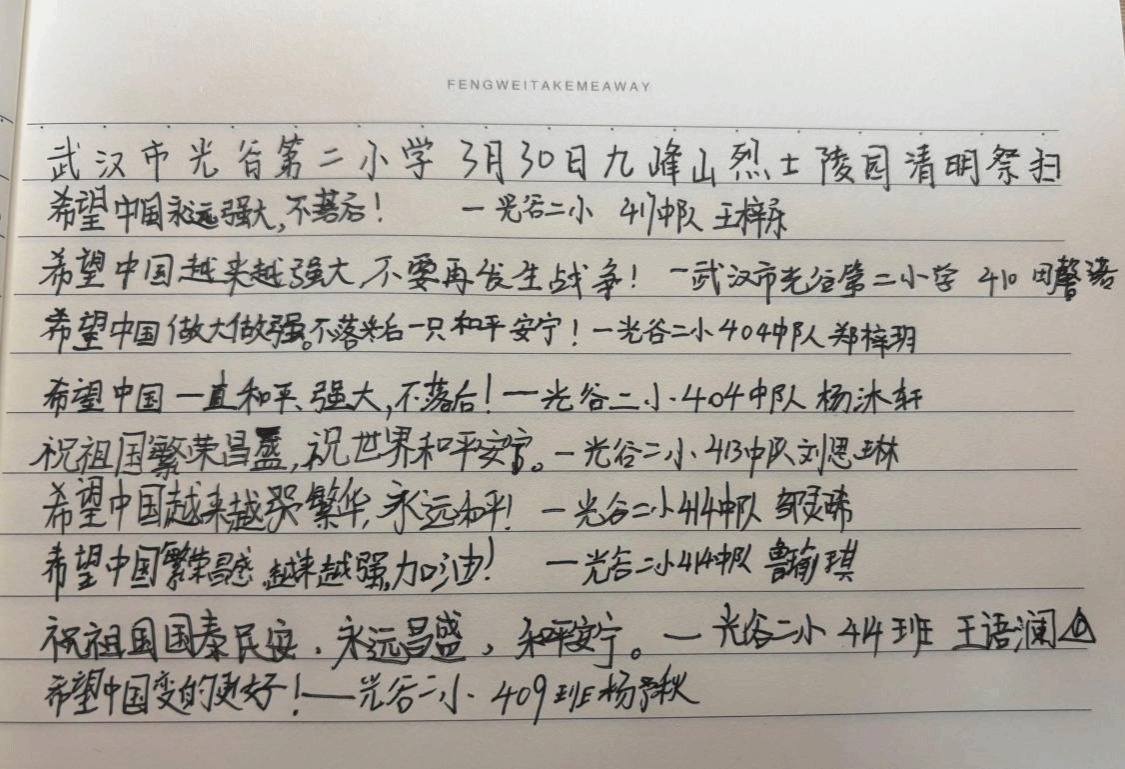 FENGWEITAKEMEAWAY
武汉市光谷第二小学3月30日九峰山烈士陵园清明祭扫
希望中国永远强大,不落后! 一光谷二小 417中队 王梓乐
希望中国越来越强大,不要再发生战争! 一武汉市光谷第二小学 410
希望中国做大做强。不落后一只和平安宁!一光谷二小404中队 郑梓玥
希望中国一直和平、强大,不落后!一光谷二小404中队 杨沐轩
祝祖国繁荣昌盛,祝世界和平安宁。一光谷二小413中队刘思琳
希望中国越来越强繁华,永远和平! 一光谷二小414中队 邹灵晞
希望中国繁荣昌盛,越来越强,加油! 一光谷二小414中队 鲁瑜琪
祝祖国国泰民安,永远昌盛,和平安宁。一光谷二小 414班 王语澜
希望中国变的更好!——光谷二小 409班杨予秋